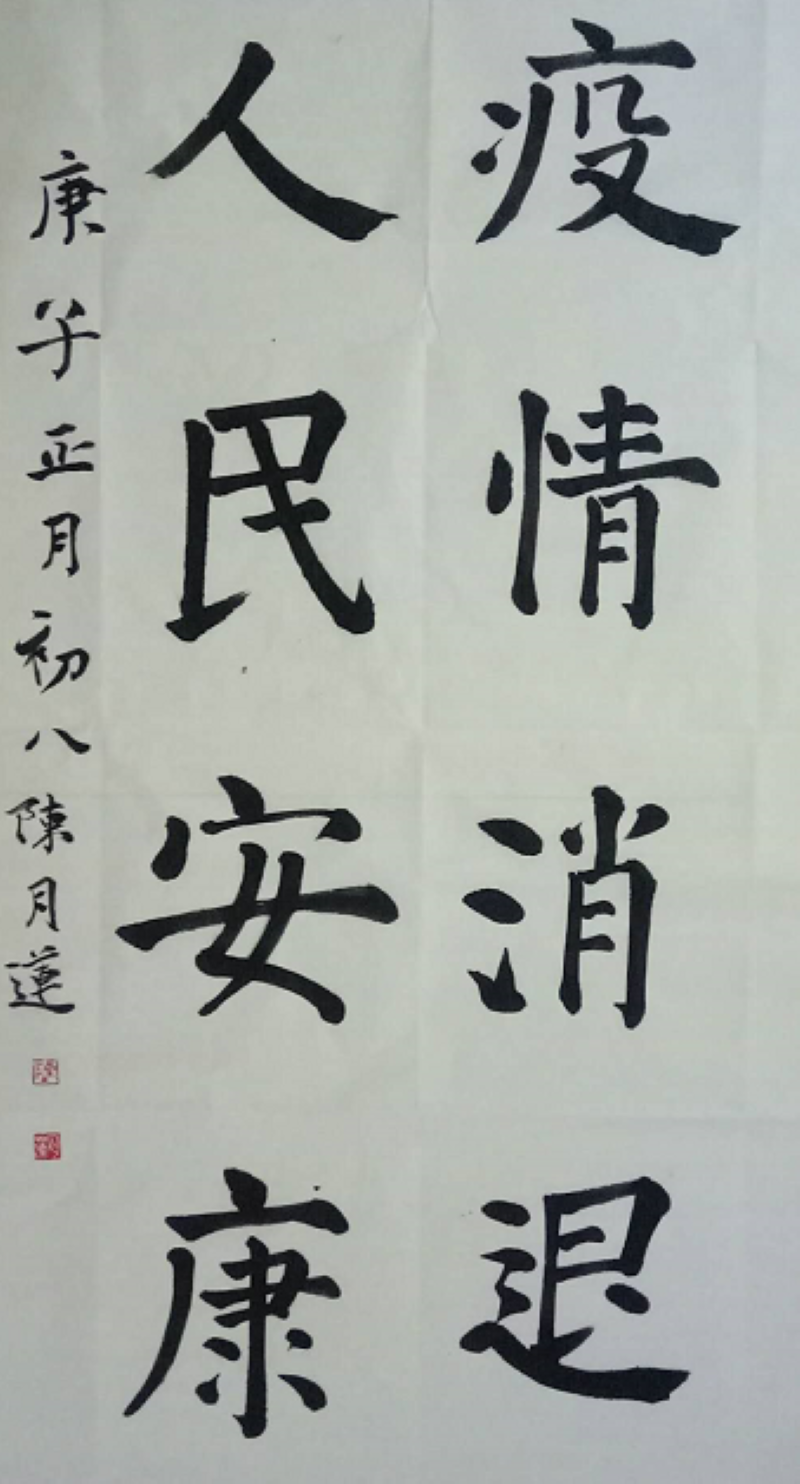 疫情消退
人民安康
庚子正月初八陳月蓮